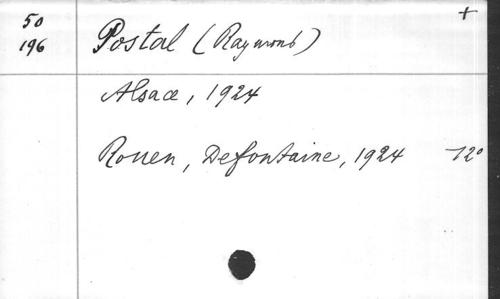 50
196
Postal (Raymond)
+
Alsace, 1924
Rouen, Defontaine, 1924 12°